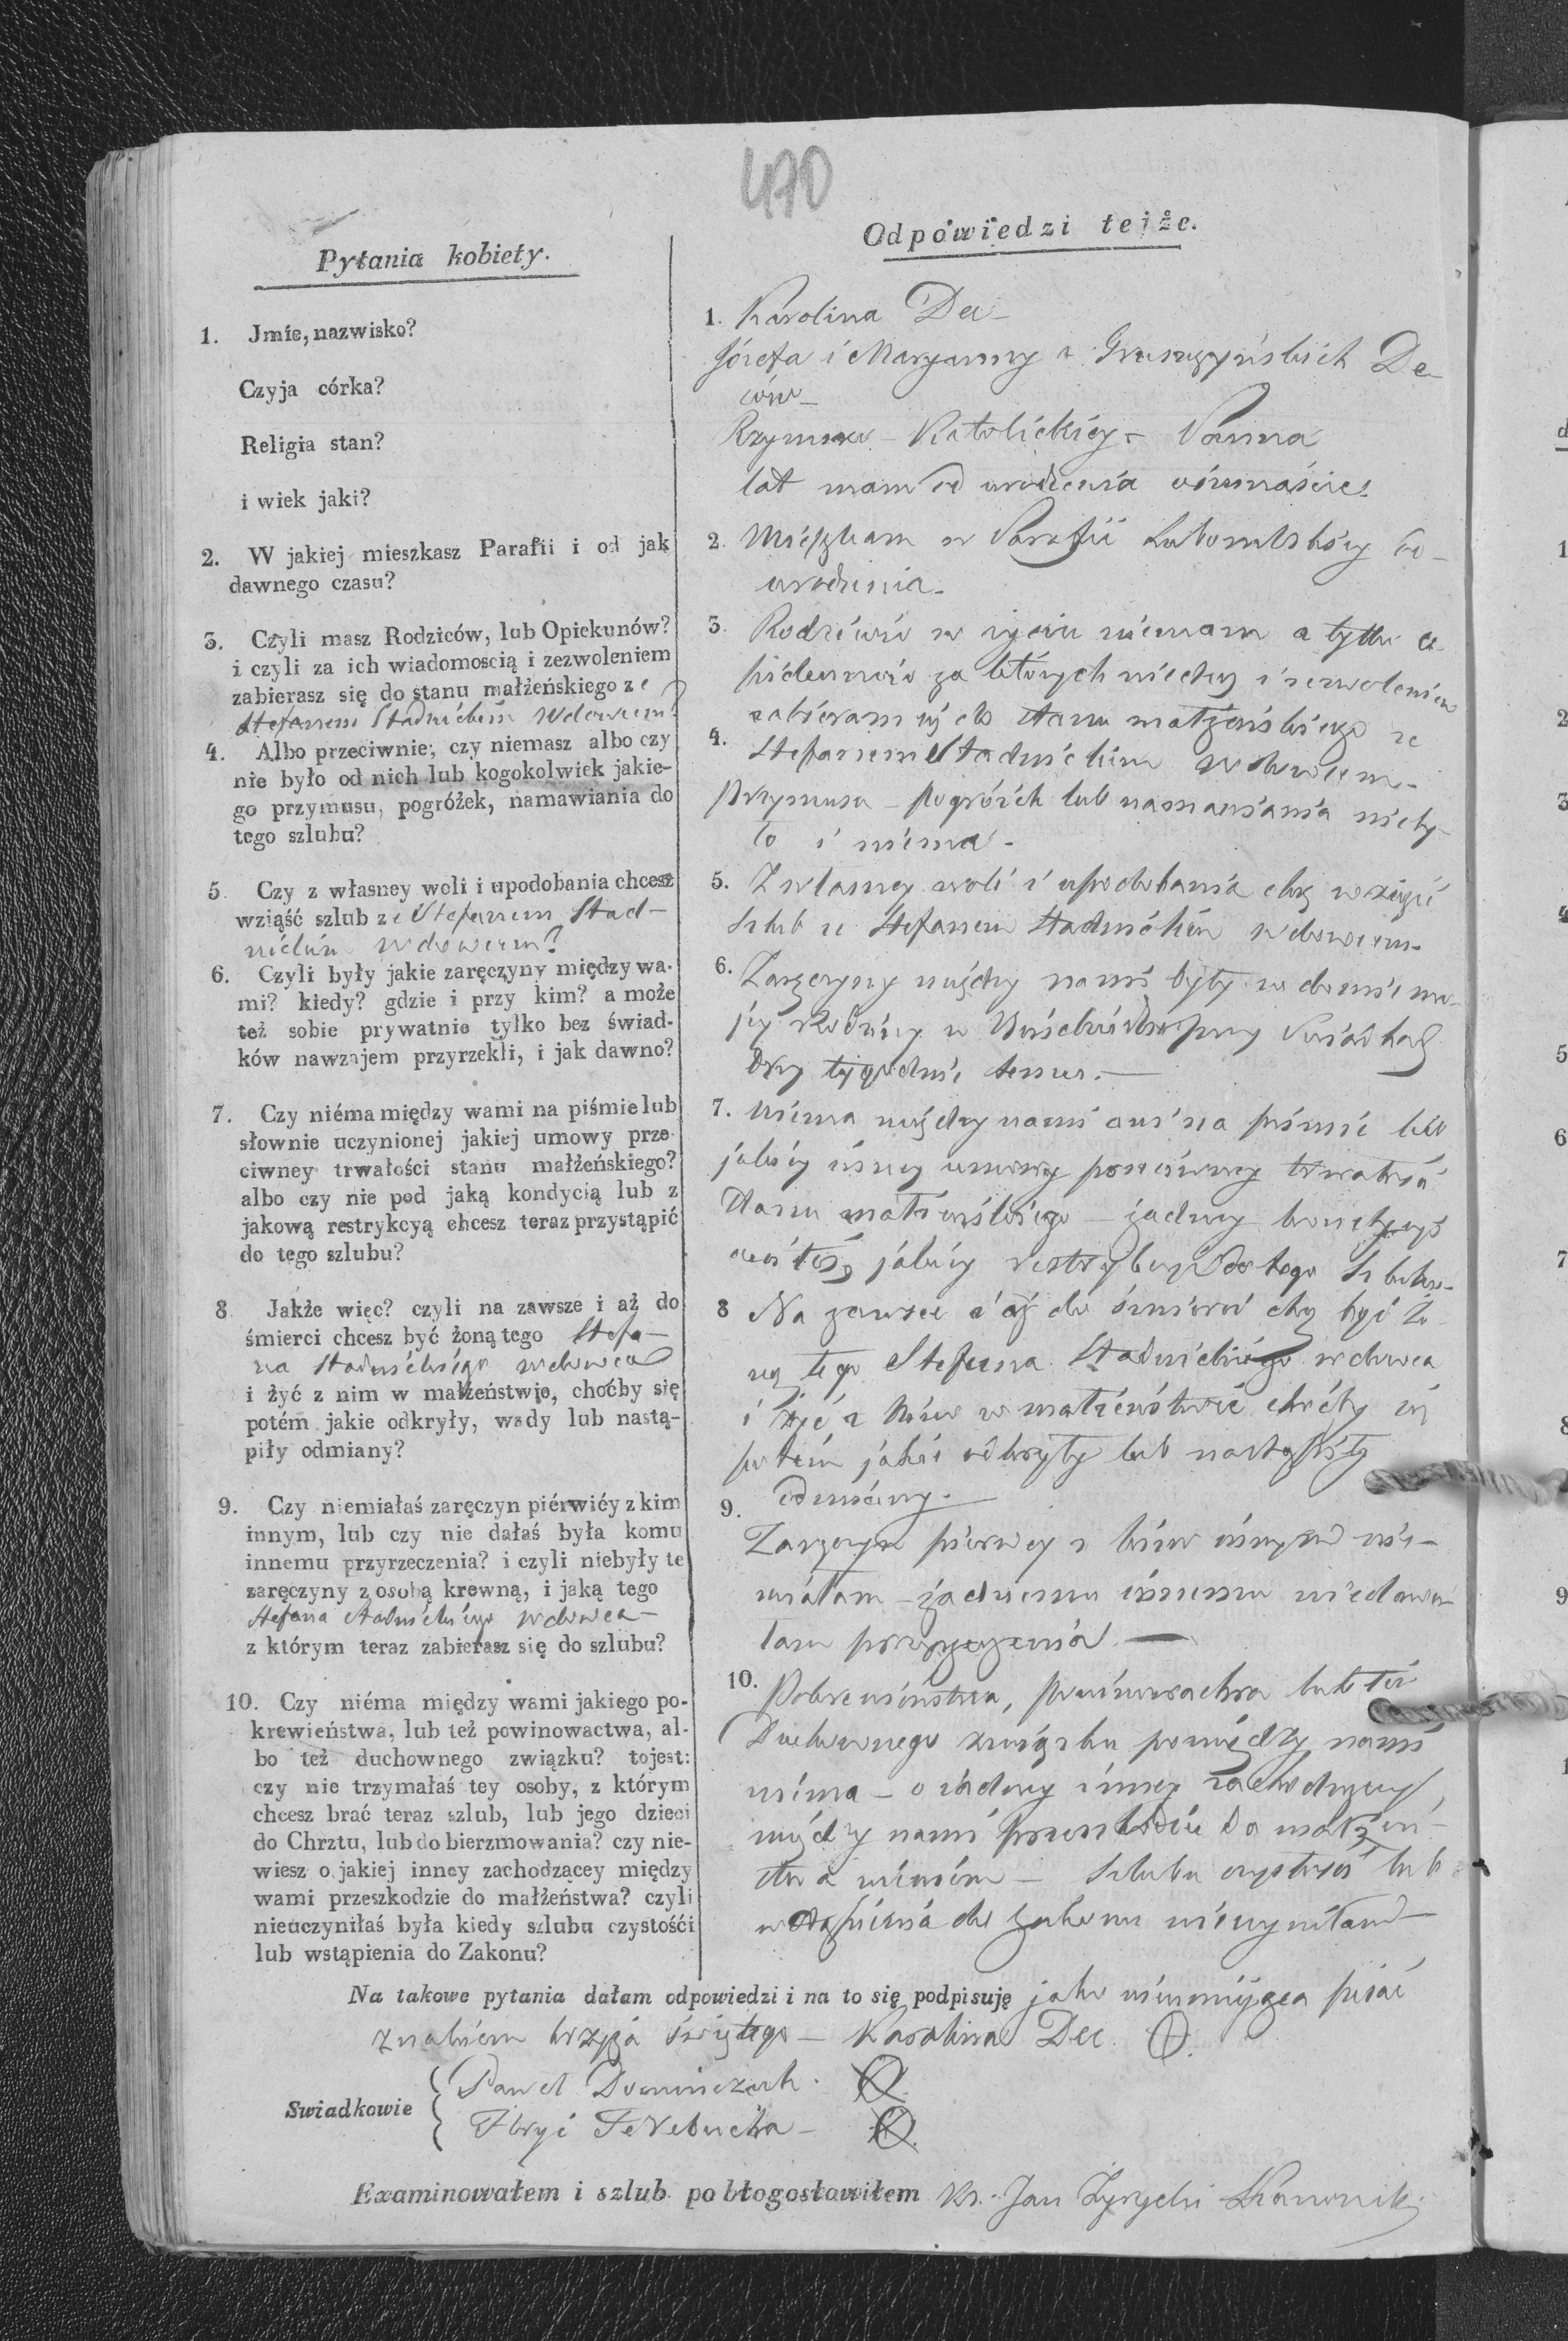 470
Pytania kobiety.
1. Jmie, nazwisko?
Czyja córka?
Religia stan?
i wiek jaki?
2. W jakiej mieszkasz Parafii i od jak
dawnego czasu?
3. Czyli masz Rodziców, lub Opiekunów?
i czyli za ich wiadomoscią i zezwoleniem
zabierasz się do stanu małżeńskiego z e
Stefanem Stadnickim Wdowcem?
4. Albo przeciwnie, czy niemasz albo czy
nie było od nich lub kogokolwiek jakie-
go przymusu, pogróżek, namawiania do
tego szlubu?
5. Czy z własney woli i upodobania chcesz
wziąść szlub z e Stefanem Stad-
nickim wdowcem?
6. Czyli były jakie zaręczyny między wa-
mi? kiedy? gdzie i przy kim? a może
też sobie prywatnie tylko bez świad-
ków nawzajem przyrzekli, i jak dawno?
7. Czy niéma między wami na piśmie lub
słownie uczynionej jakiej umowy prze-
ciwney trwałości stanu małżeńskiego?
albo czy nie pod jaką kondycią lub z
jakową restrykcyą chcesz teraz przystąpić
do tego szlubu?
8. Jakże więc? czyli na zawsze i aż do
śmierci chcesz być żoną tego Stefa-
na Stadnickiego wdowca
i żyć z nim w małżeństwie, choćby się
potém jakie odkryły, wady lub nastą-
piły odmiany?
9. Czy niemiałaś zaręczyn piérwiéy z kim
innym, lub czy nie dałaś była komu
innemu przyrzeczenia? i czyli niebyły te
zaręczyny z osobą krewną, i jaką tego
Stefana Stadnickiego wdowca-
z którym teraz zabierasz się do szlubu?
10. Czy niéma między wami jakiego po-
krewieństwa, lub też powinowactwa, al-
bo też duchownego związku? tojest:
czy nie trzymałaś tey osoby, z którym
chcesz brać teraz szlub, lub jego dzieci
do Chrztu, lub do bierzmowania? czy nie-
wiesz o jakiej inney zachodzącey między
wami przeszkodzie do małżeństwa? czyli
nieuczyniłaś była kiedy szlubu czystośći
lub wstąpienia do Zakonu?
Odpowiedzi tejże.
1. Karolina Dec-
Józefa i Maryanny z Gruszczyńskich De-
ców-
Rzymsko-Katolickiey- Panna
lat mam od urodzenia ośmnaście.
2. Mieszkam w Parafii od
urodzenia.
3. Rodziców w życiu niemam a tylko o-
piekunów za których wiedzą i zezwoleniem
zabieram się do stanu małżeńskiego ze
4. Stefanem Stadnickim wdowcem-
Przymusu- pogróżek lub namawiania nieby-
ło i niema-
5. Z własney woli i upodobania chcę wziąść
szlub ze Stefanem Stadnickim wdowcem-
6. Zaręczyny między nami były w domu mo-
jey Rodziny w przy
trzy tygodnie temu.
7. Niema między nami ani na piśmie lub
jakiey ustney umowy przeciwney trwałości
stanu małżeńskiego - żadney kondycyi
ani też jakiey restrykcyi do tego szlubu-
8 Na zawsze i aż do śmierci chcę być żo-
ną tego Stefana Stadnickiego wdowca
i żyć z Nim w małżeństwie choćby się
potém jakie odkryły lub nastąpiły
odmiany.
9.
Zaręczyn pierwey z kim innym nie-
miałam - żadnemu innemu niedawa-
łam przyrzeczenia.
10. Pokrewieństwa, powinowactwa lub też
Duchownego związku pomiędzy nami
niema - o żadney inney zachodzącey
między nami przeszkodzie do małżeń-
stwa niewiem - szlubu czystości lub
wstąpienia do zakonu nieczyniłam-
Na takowe pytania dałam odpowiedzi i na to się podpisuję jako nieumiejąca pisać
znakiem krzyża świętego - Karolina Dec
Swiadkowie
Paweł Dominiczuk.
Examinowałem i szlub pobłogosławiłem Ks. Jan Kanonik